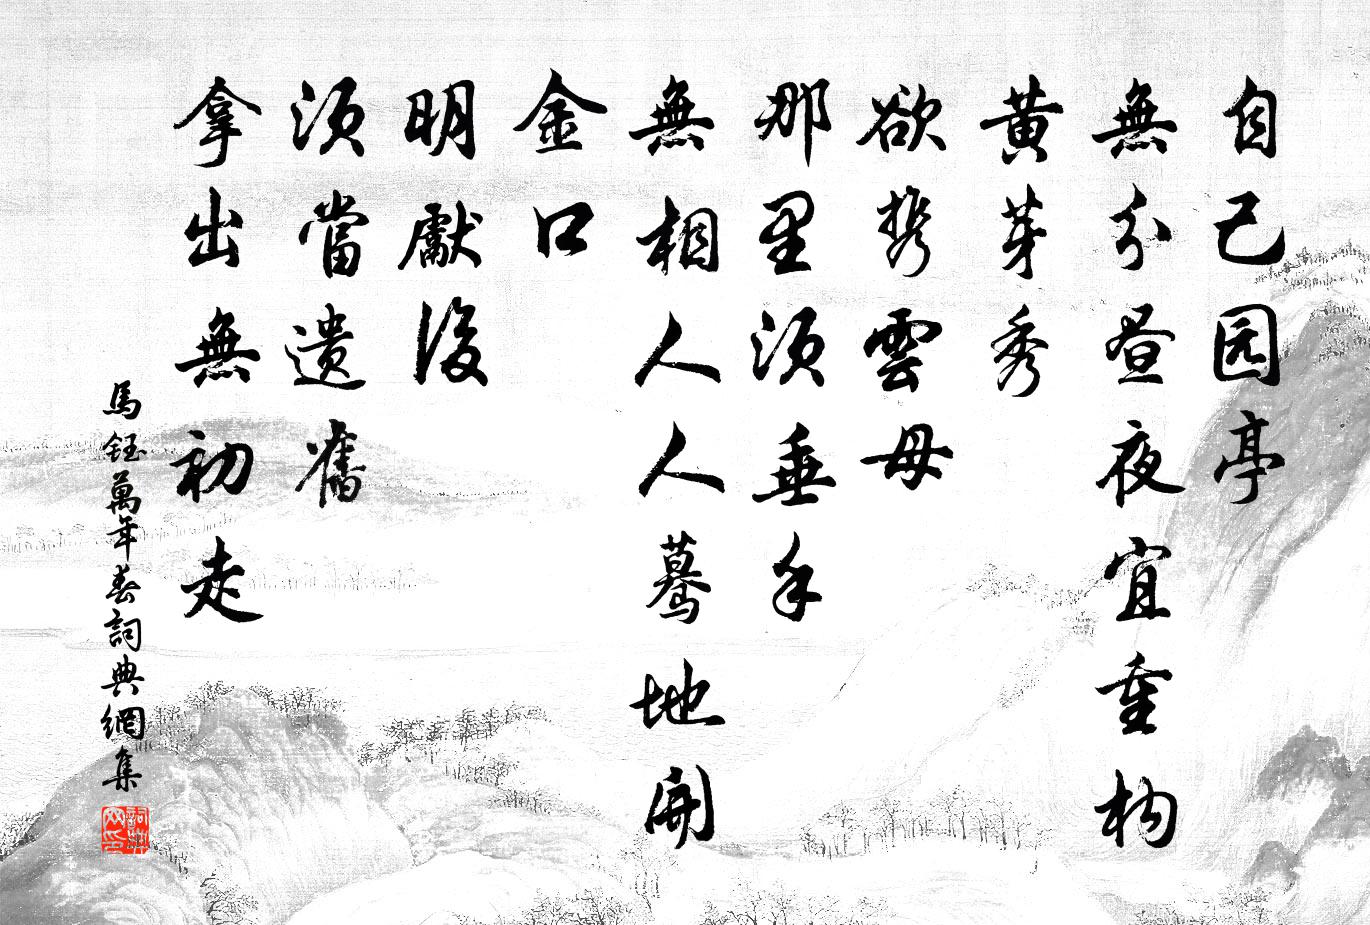 自己园亭
無分昼夜宜重构
黄芽秀
欲携雲母
那里须垂手
無相人人驀地開
金口
明獻後
须當遗舊
拿出無初走
馬鈺萬年春詞典網集